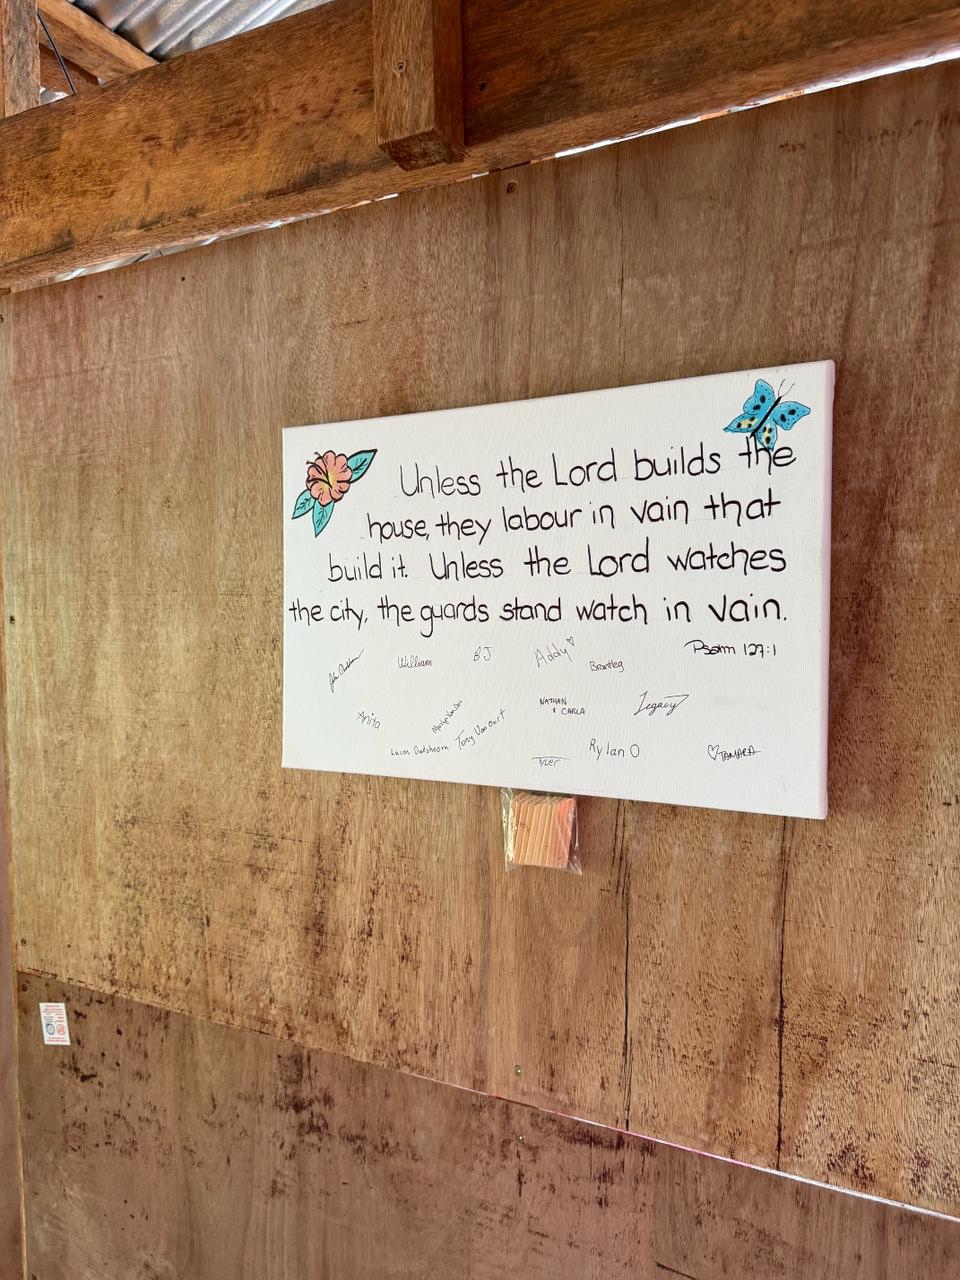 Unless the Lord builds the
house, they labour in vain that
build it. Unless the Lord watches
the city, the guards stand watch in vain.
Psalm 127:1
William BJ Addy Brantleg
Anita NATHAN & CARLA Legacy
Lucas Oudshoorn Tony Van Oort Tyler Rylan O TAMARA